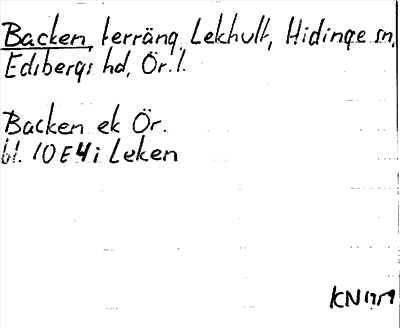 Backen, terräng, Lekhult, Hidinge sn,
Edsbergs hd, Ör. l.
Backen ek Ör.
bl. 10E4i Leken